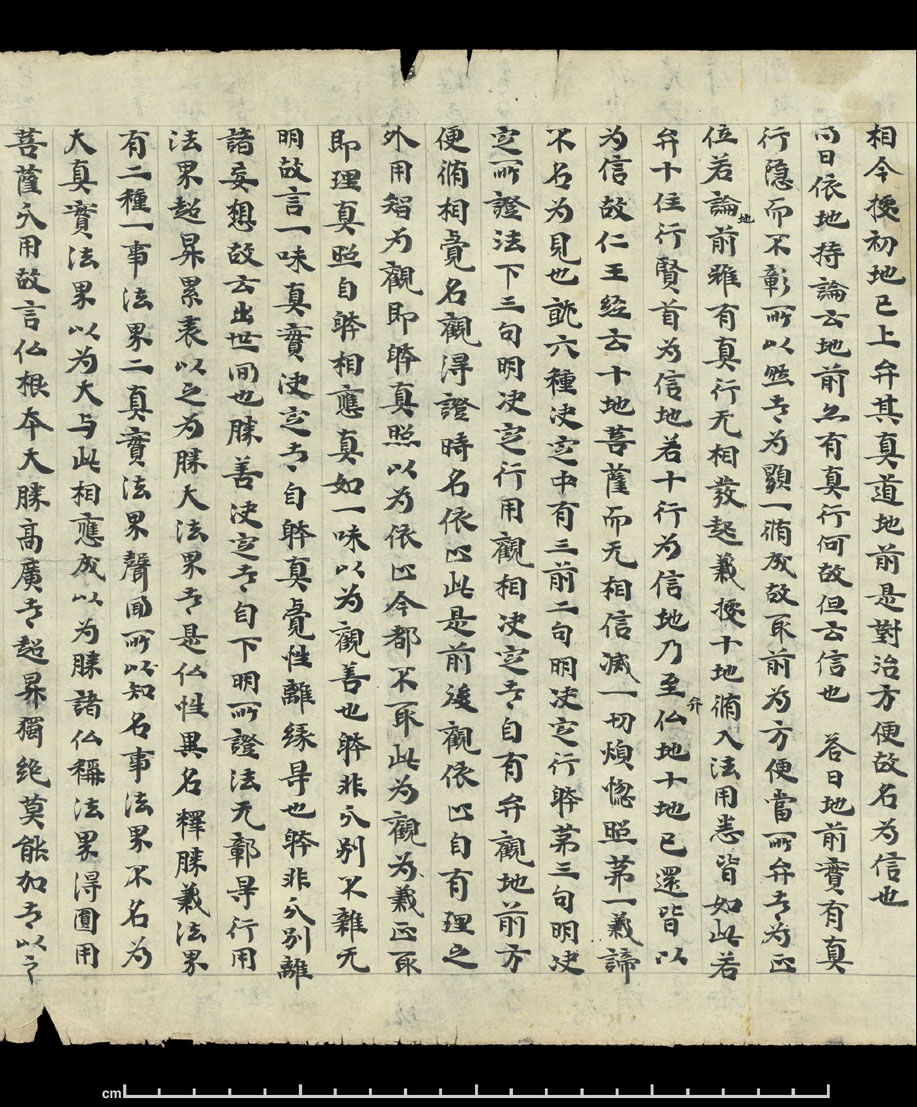 相今挍初地已上弁其真道地前是對治方便故名為信也
問曰依地持論云地前亦有真行何故但云信也 答曰地前實有真
行隐而不彰所以然者為顯一脩成故取前為方便當所弁者為正
位若論地前雖有真行无相發起義挍十地脩入法用悉皆如此若
弁十住行賢首為信地若十行為信地乃至仏地弁十地已還皆以
為信故仁王经云十地菩薩而无相信滅一切煩惚照苐一義諦
不名為見也就六種决㝎中有三前二句明决㝎行體苐三句明决
㝎所證法下三句明决㝎行用觀相决㝎者自有弁觀地前方
便脩相覺名觀得證時名依心此是前後觀依心自有理之
外用智为觀即體真照以為依心今都不取此为觀为義正取
即理真照自體相應真如一味以為觀善也體非分别不雜无
明故言一味真實决㝎者自體真覺性離緣㝵也體非分别離
諸妄想故云出世间也勝善决㝎者自下明所證法无鄣㝵行用
法界超昇累表以之为勝大法界者是仏性異名釋勝義法界
有二種一事法界二真實法界聲聞所以知名事法界不名为
大真實法界以为大与此相應成以為勝諸仏稱法界得圓用
菩薩分用故言仏根夲大勝高廣者超昇獨絶莫能加者以之